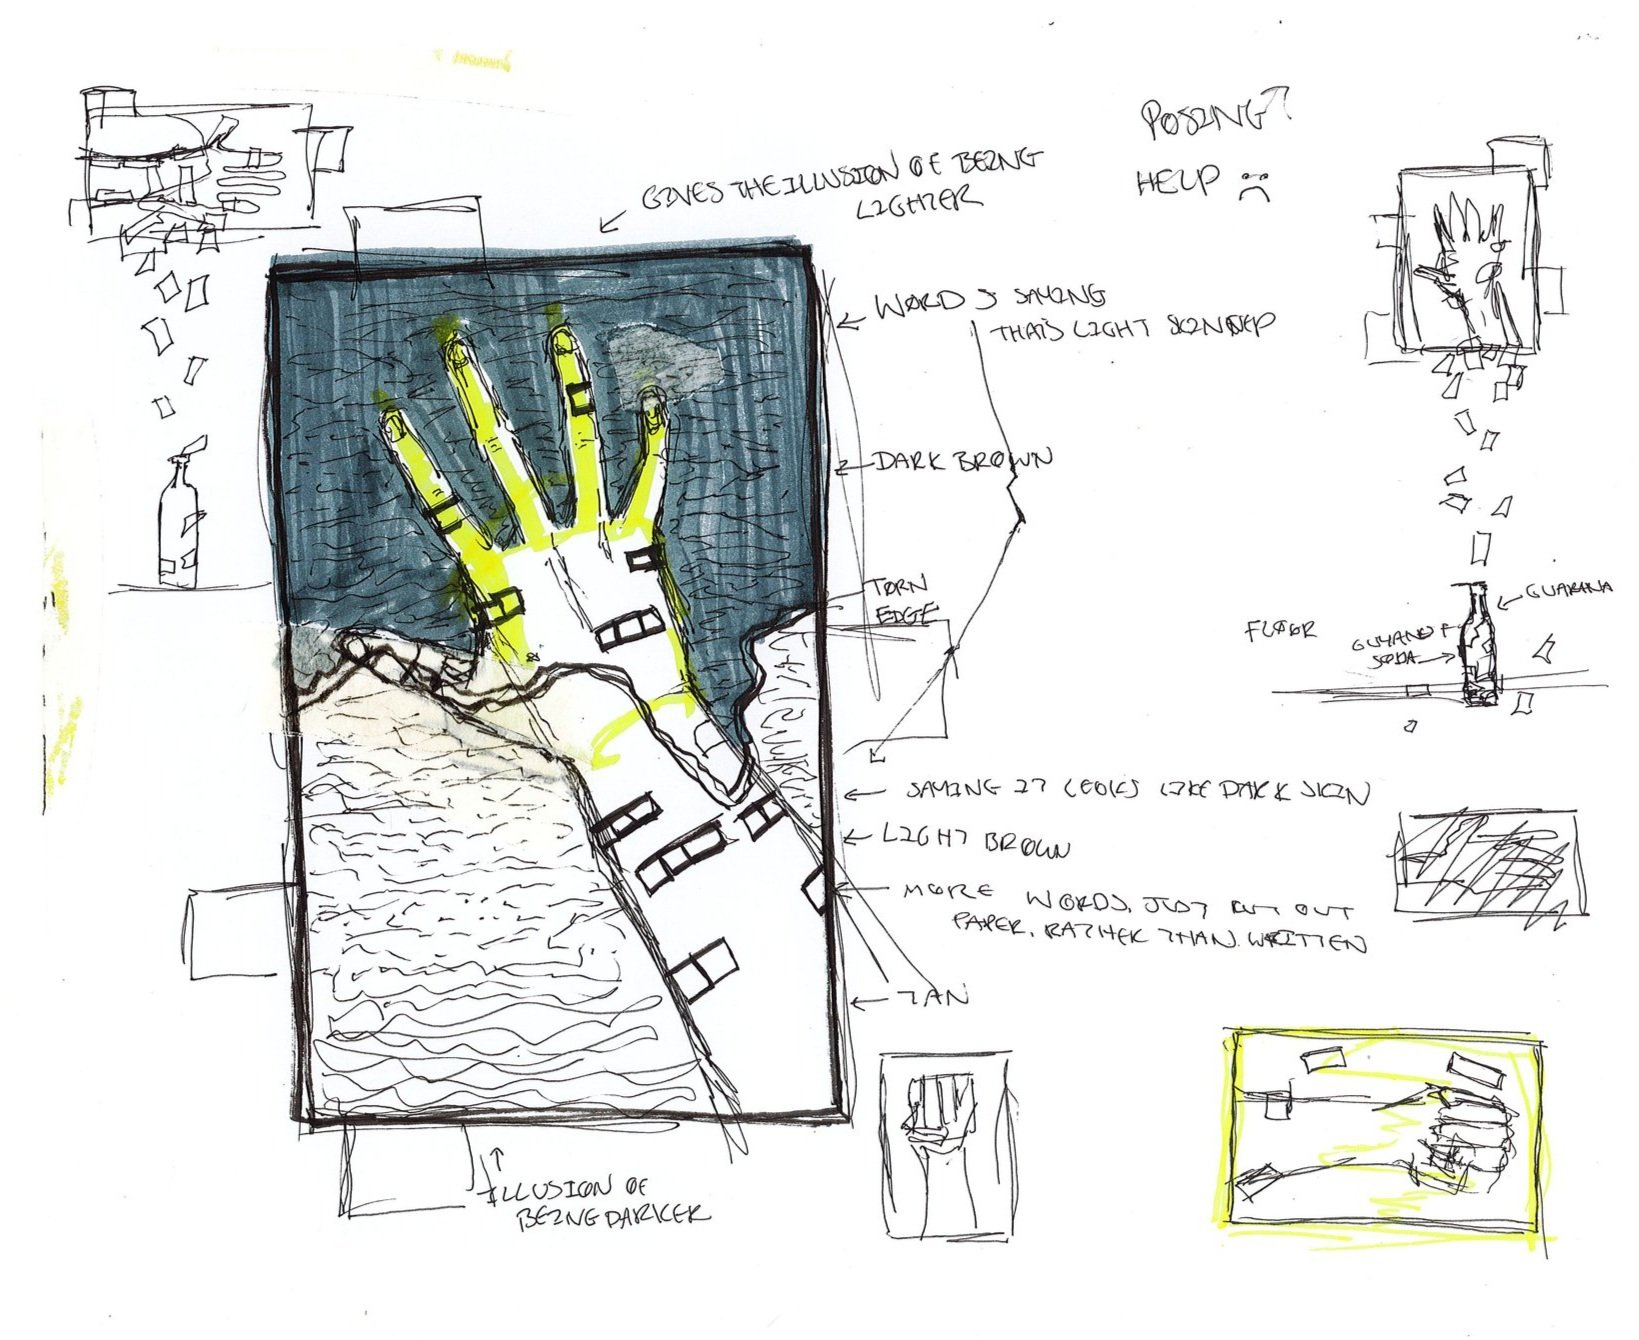 POSING?
HELP :(
GIVES THE ILLUSION OF BEING
LIGHTER
WORDS SAYING
THATS LIGHT SKINNED
DARK BROWN
TORN
EDGE
GUARANA
FLOOR
SODA
SAYING IT LOOKS LIKE DARK SKIN
LIGHT BROWN
MORE WORDS, JUST CUT OUT
PAPER, RATHER THAN WRITTEN
TAN
ILLUSION OF
BEING DARKER